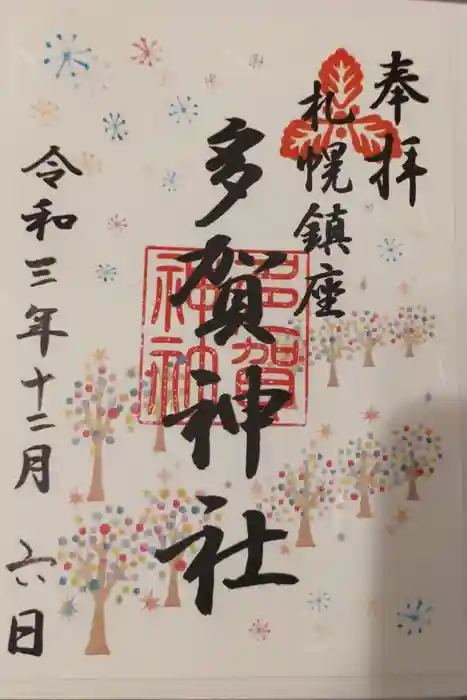 奉拝
札幌鎮座
多賀神社
多賀
神社
令和三年十二月 六日